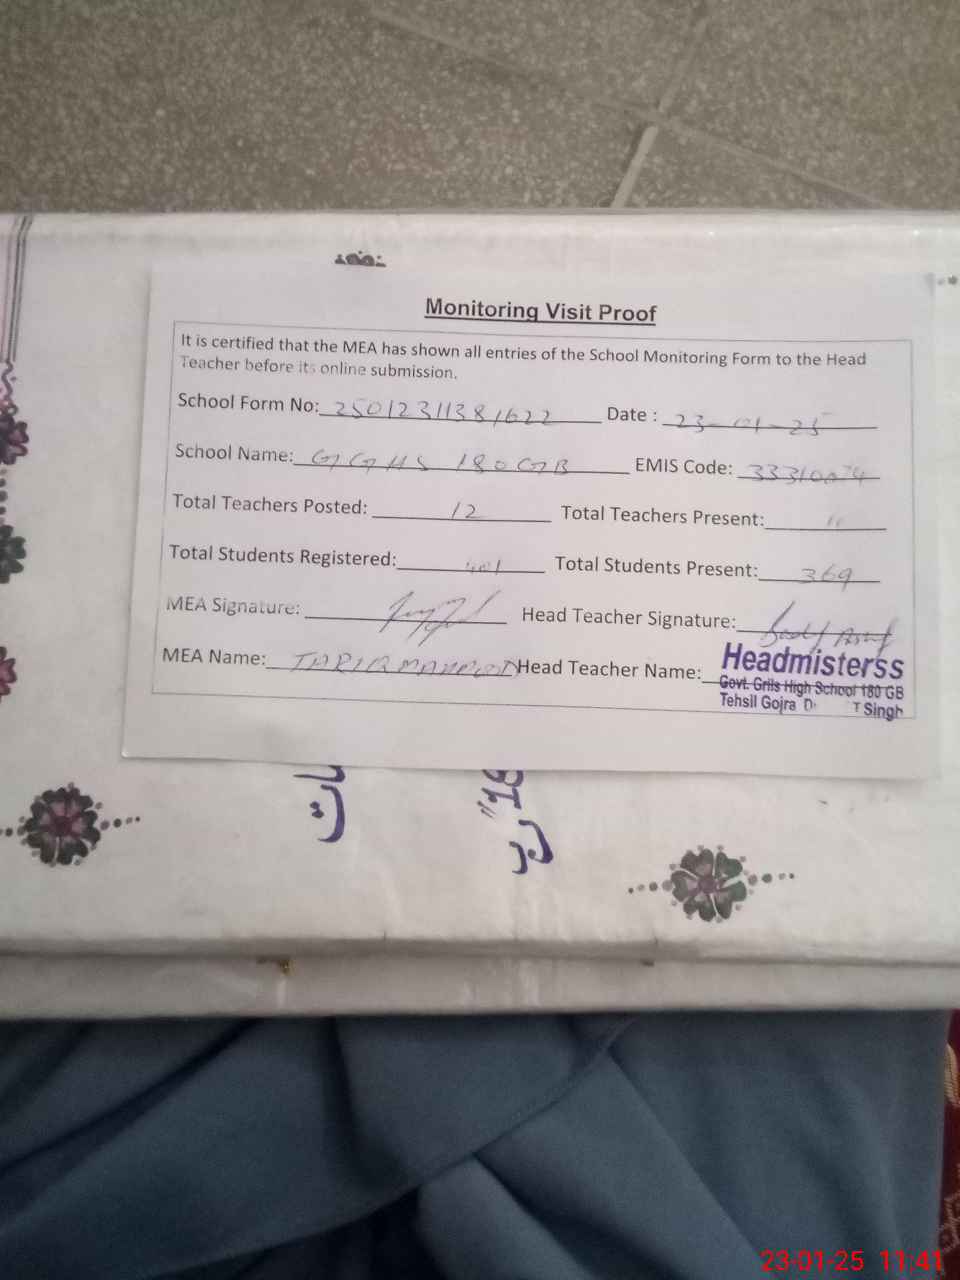 Monitoring Visit Proof
It is certified that the MEA has shown all entries of the School Monitoring Form to the Head
Teacher before its online submission.
School Form No: 25012311381622 Date : 23-01-25
School Name: GGHS 180GB EMIS Code:
Total Teachers Posted: 12 Total Teachers Present: 11
Total Students Registered: 401 Total Students Present: 369
MEA Signature: Head Teacher Signature:
MEA Name: Head Teacher Name:
Headmisterss
Govt. Grils High School 180 GB
Tehsil Gojra D T Singh
23-01-25 11:41